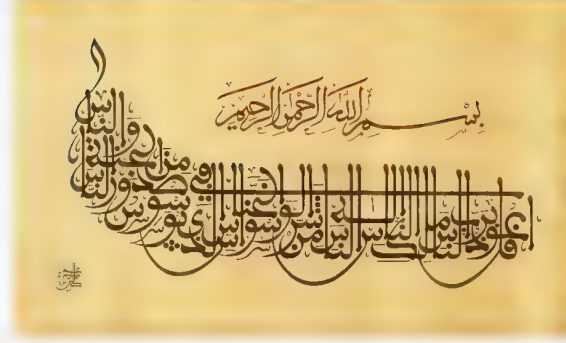 بسم الله الرحمن الرحيم
قل أعوذ برب الناس ملك الناس إله الناس من شر الوسواس الخناس الذي يوسوس في صدور الناس من الجنة والناس